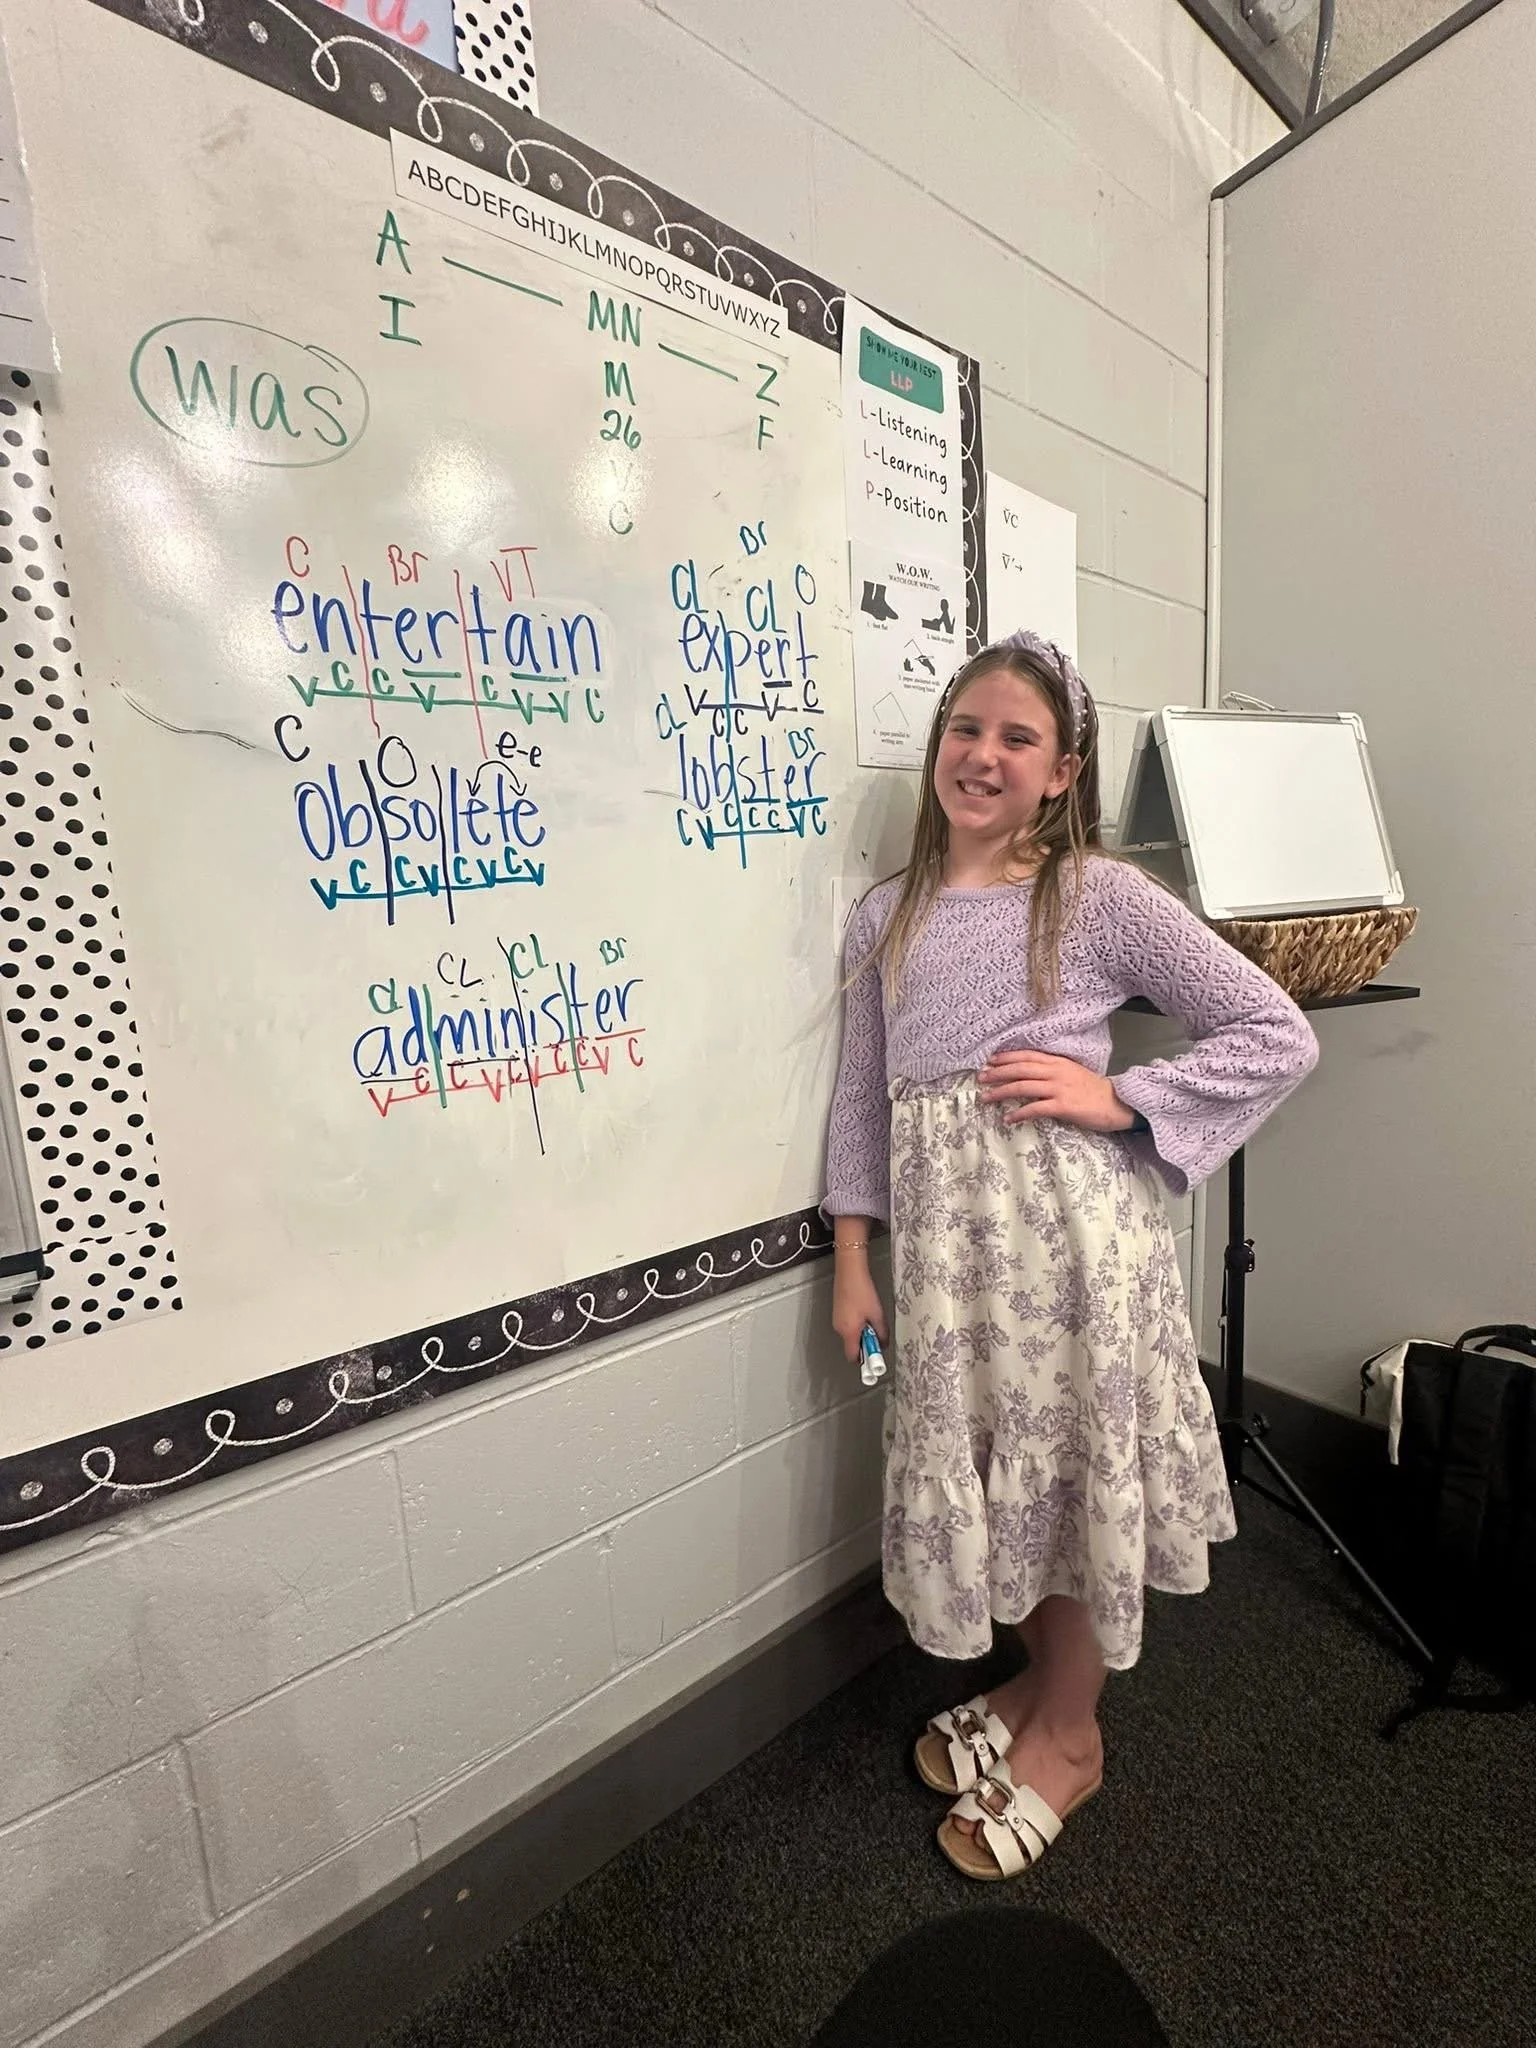 ABCDEFGHIJKLMNOPQRSTUVWXYZ
A MN Z
I M F
26
V
C
was
C Br VT
entertain
V C C V C V V C
C O e-e
obsolete
V C C V C V C V
cl CL CL Br
administer
V C C V C V C C V C
Br
CL CL O
expert
V C C V C
cl Br
lobster
C V C C C V C
SHOW ME YOUR BEST
LLP
L-Listening
L-Learning
P-Position
W.O.W.
WATCH OUR WRITING
1. feet flat
2. back straight
3. paper anchored with
non-writing hand
4. paper parallel to
writing arm
V̆C
V̄´→